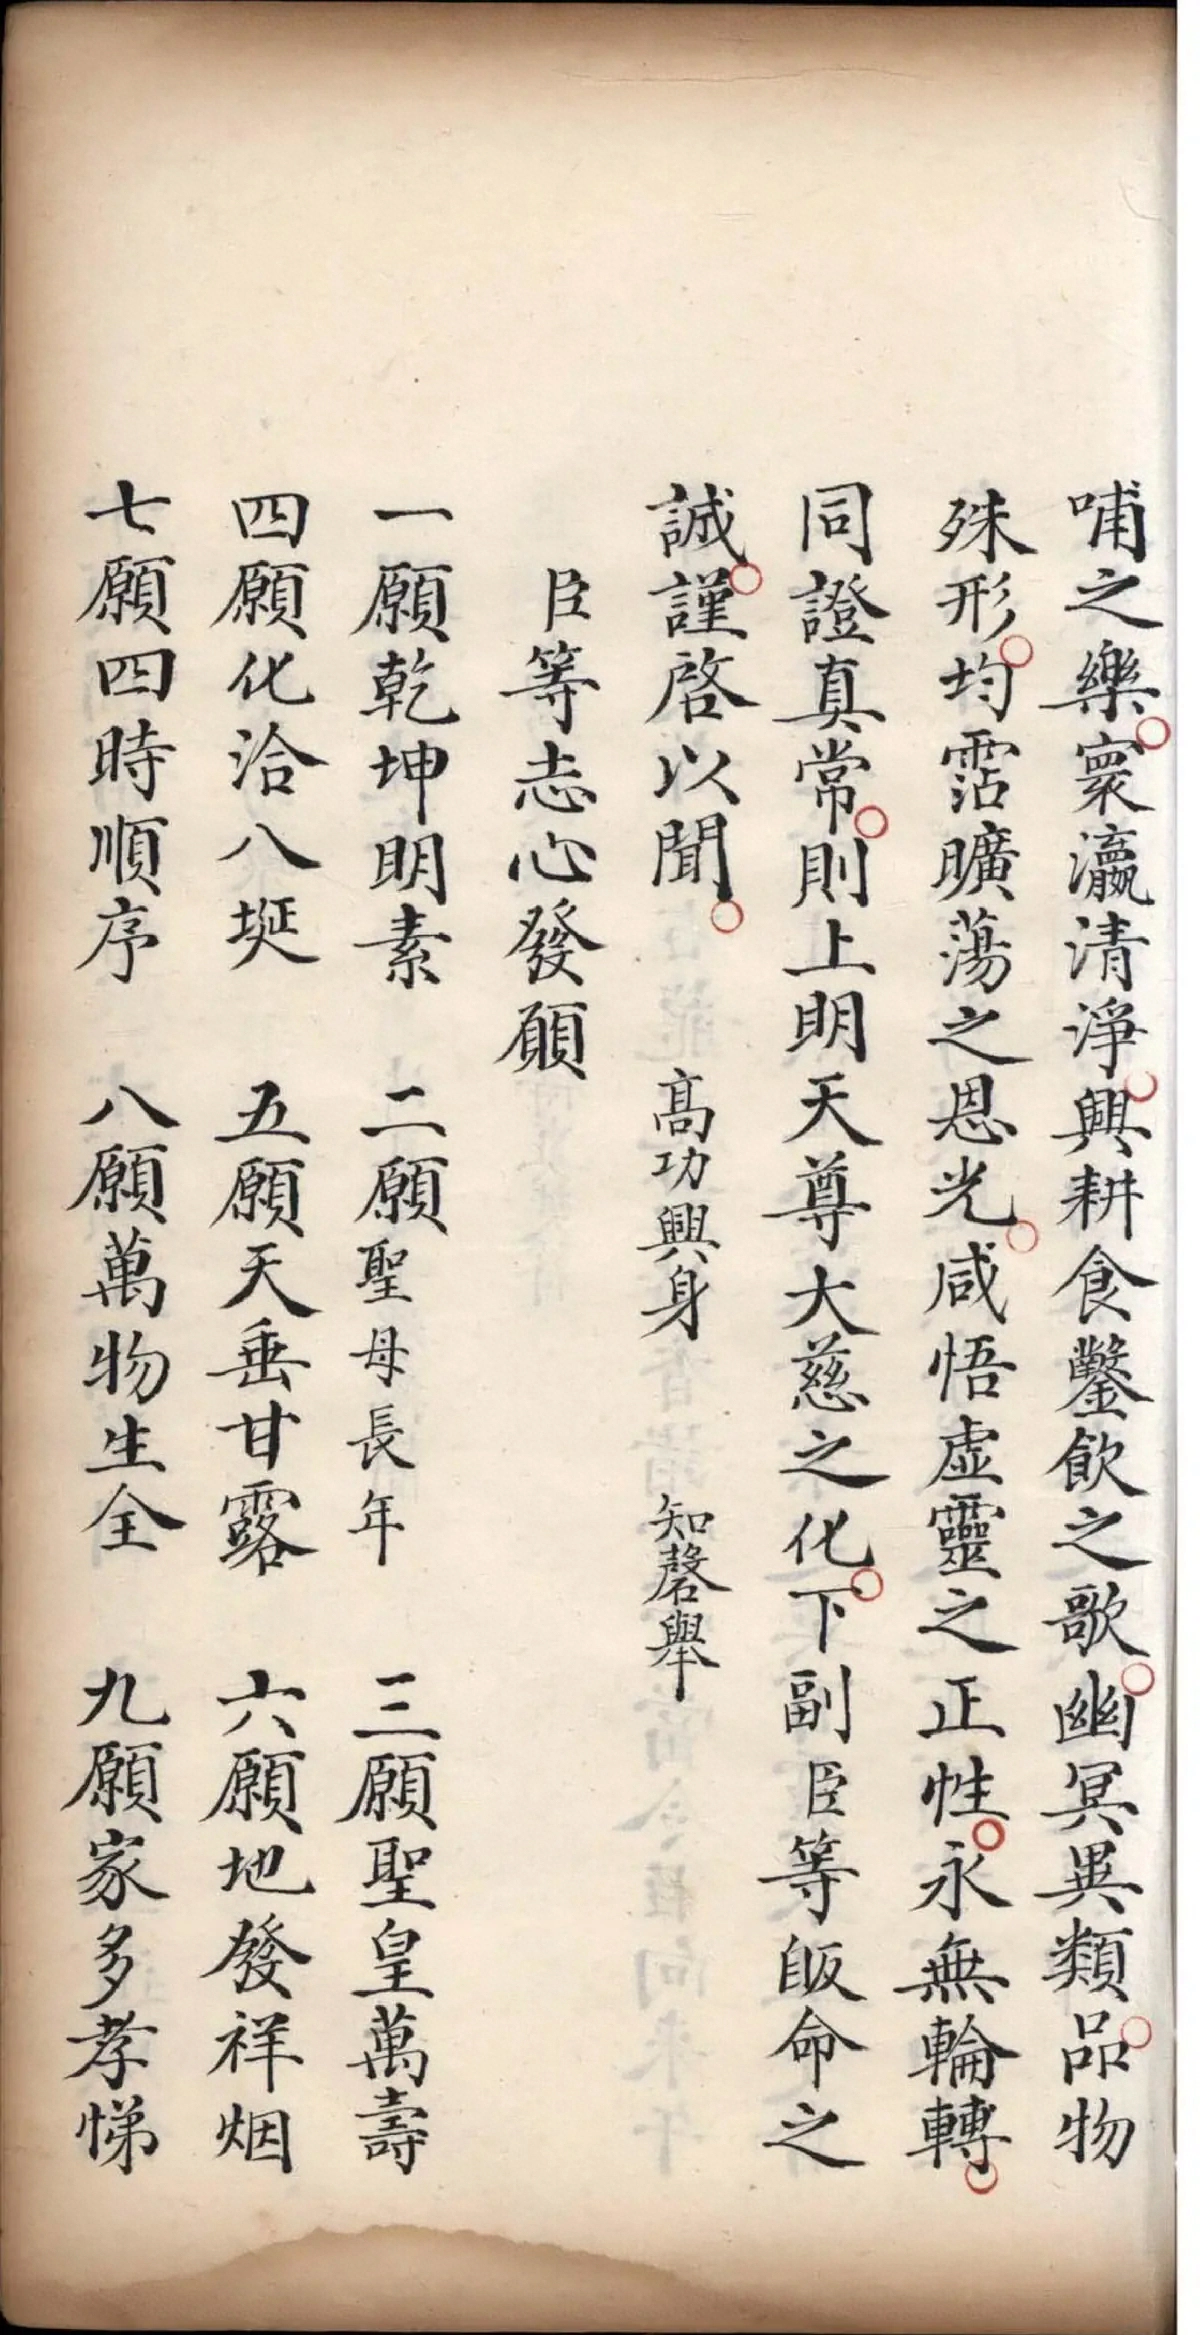 哺之樂寰瀛清淨興耕食鑿飲之歌幽冥異類品物
殊形均霑曠蕩之恩光咸悟虛靈之正性永無輪轉
同證真常則上明天尊大慈之化下副臣等皈命之
誠謹啓以聞　高功興身　知磬舉
臣等志心發願
一願乾坤明素　二願聖母長年　三願聖皇萬壽
四願化洽八埏　五願天垂甘露　六願地發祥烟
七願四時順序　八願萬物生全　九願家多孝悌